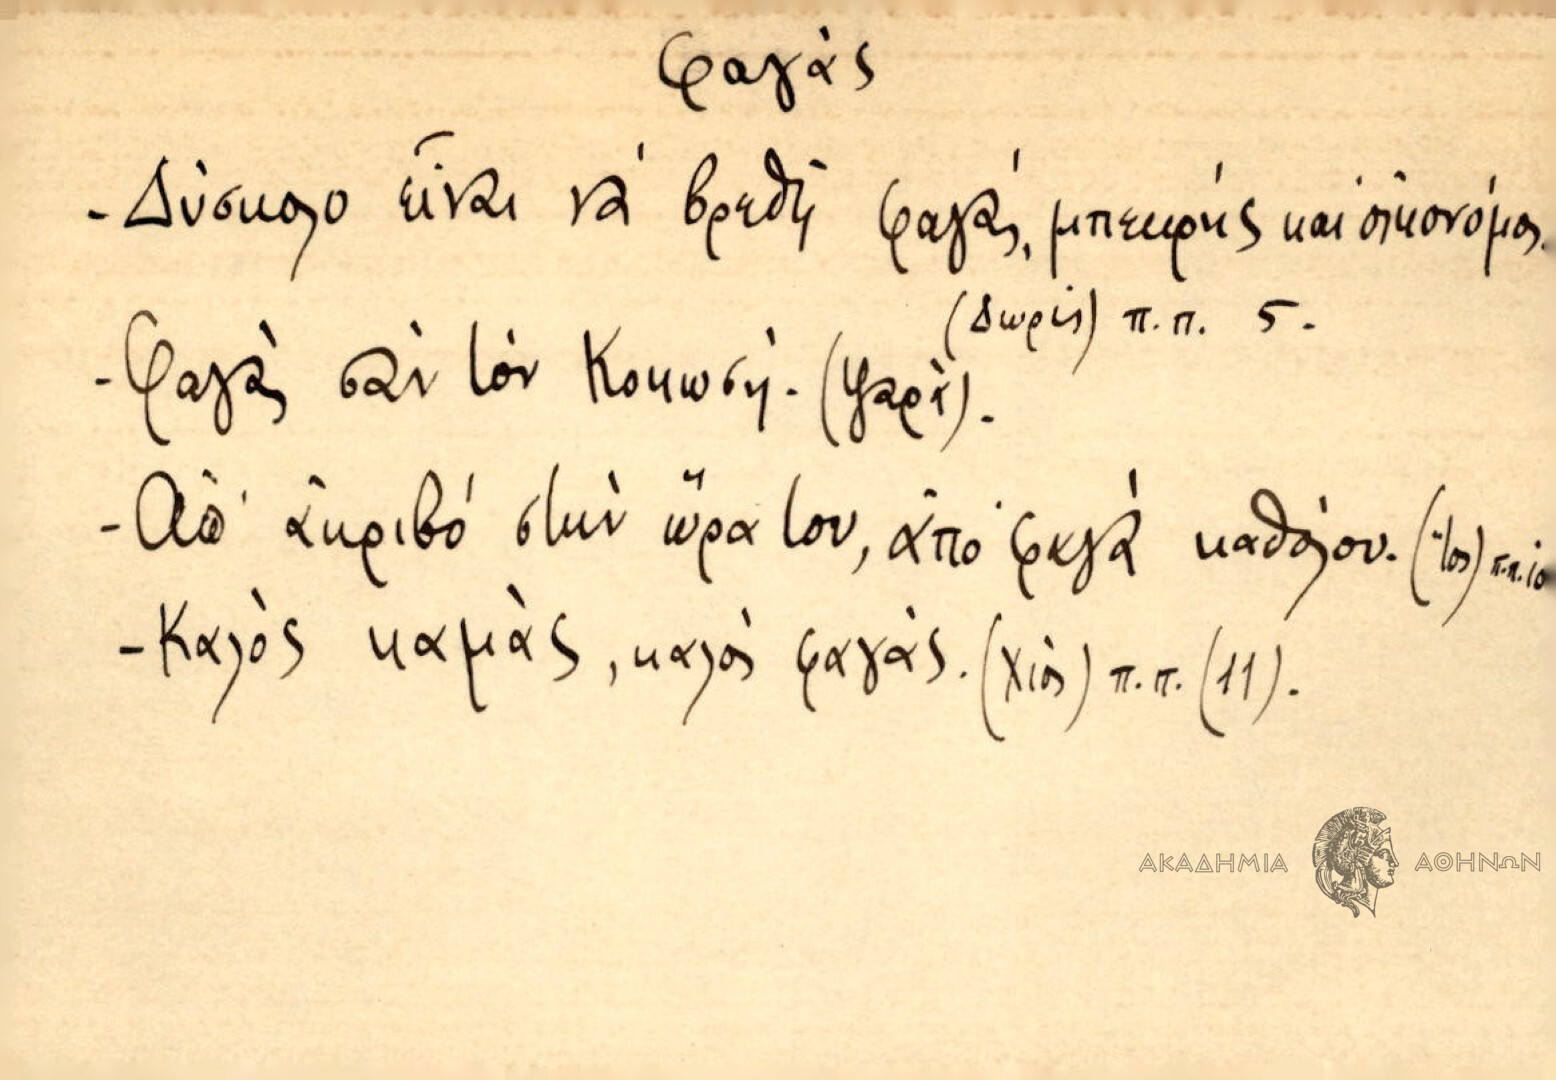 φαγὰς
- Δύσκολο εἶναι νά βρεθῆ φαγᾶς, μπεκρής καί οἰκονόμος.
(Δωρίς) π.π. 5.
- Φαγᾶς σὰν τόν Κοκωσῆ. (Ψαρὰ).
- Ἀπό ἀκριβό στὴν ὥρα του, ἀπό φαγᾶ καθόλου. (Ἴος) π.π. 10
- Καλὸς καμὰς, καλὸς φαγὰς. (Χίος) π.π. (11).
ΑΚΑΔΗΜΙΑ ΑΘΗΝΩΝ